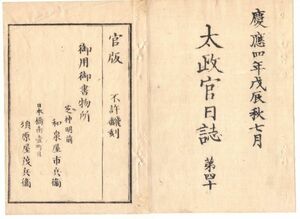 慶應四年戊辰秋七月
太政官日誌 第四十
官版 不許翻刻
御用御書物所
芝神明前
和泉屋市兵衞
日本橋南壹町目
須原屋茂兵衞